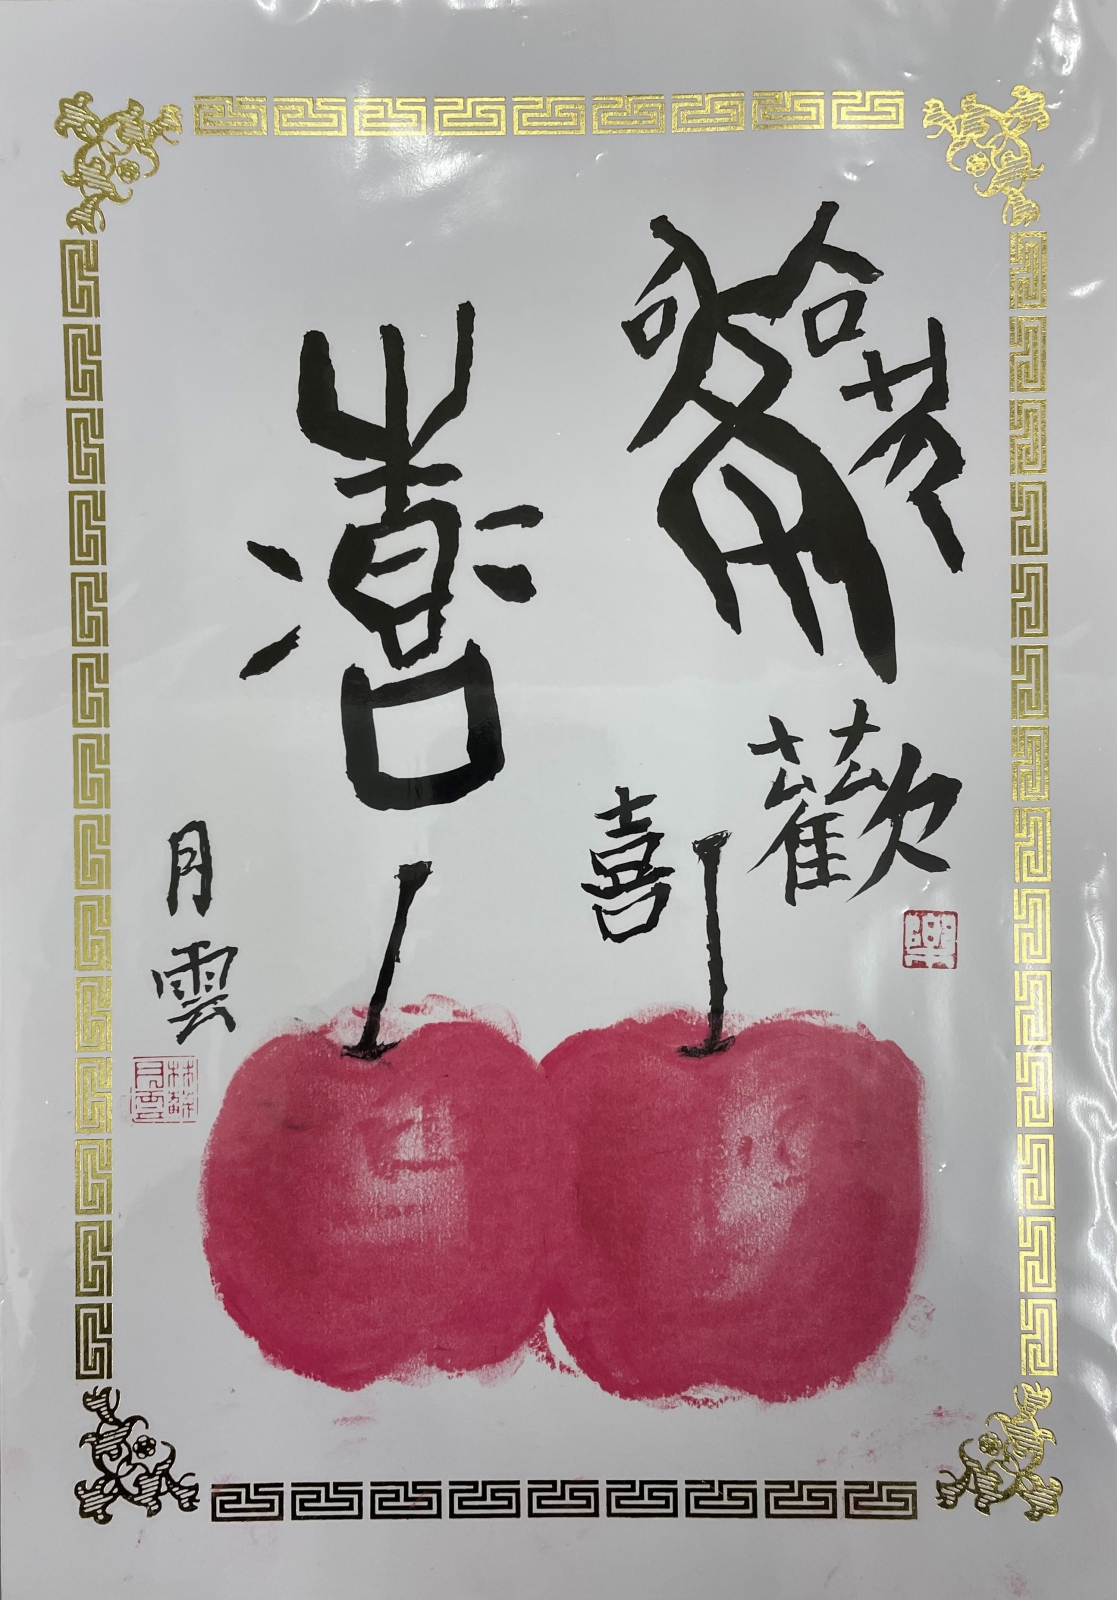 歡喜
歡喜
樂
月雲
林蘇月雲